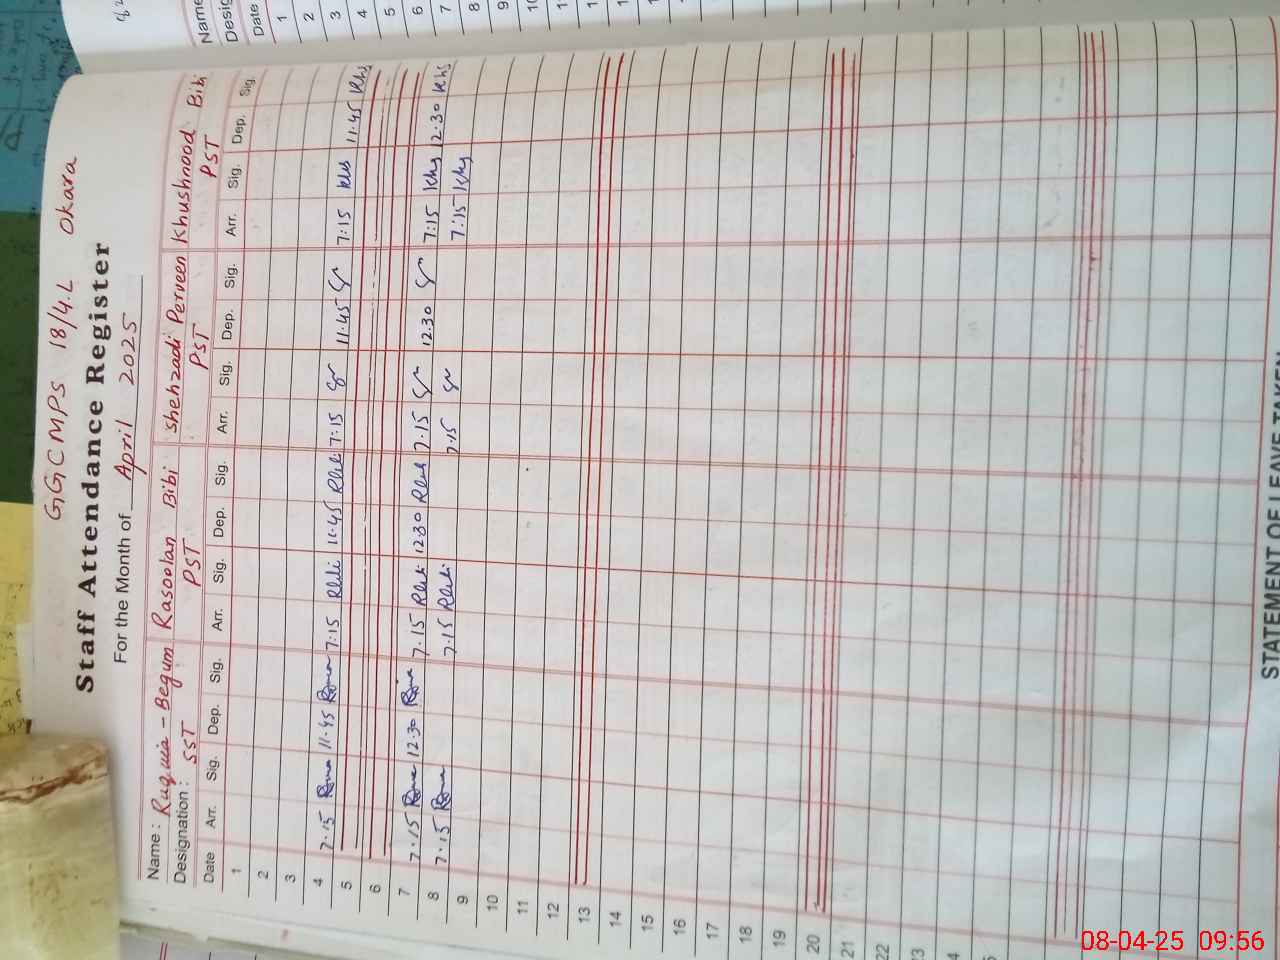 GGCMPS 18/4.L Okara
Staff Attendance Register
For the Month of April 2025
Name : Ruquia - Begum Rasoolan Bibi Shehzadi Perveen Khushnood Bibi
Designation : SST PST PST PST
Date Arr. Sig. Dep. Sig. Arr. Sig. Dep. Sig. Arr. Sig. Dep. Sig. Arr. Sig. Dep. Sig.
1
2
3
4 7.15 11.45 7:15 11.45 7:15 11.45 7:15 Khs 11.45 Khs
5
6
7 7.15 12.30 7.15 12.30 7.15 12.30 7:15 Khs 12.30 Khs
8 7.15 7.15 7.15 7:15 Khs
9
10
11
12
13
14
15
16
17
18
19
20
21
22
23
STATEMENT OF LEAVE TAKEN
Name
Date
1
2
3
4
5
6
7
8
9
08-04-25 09:56